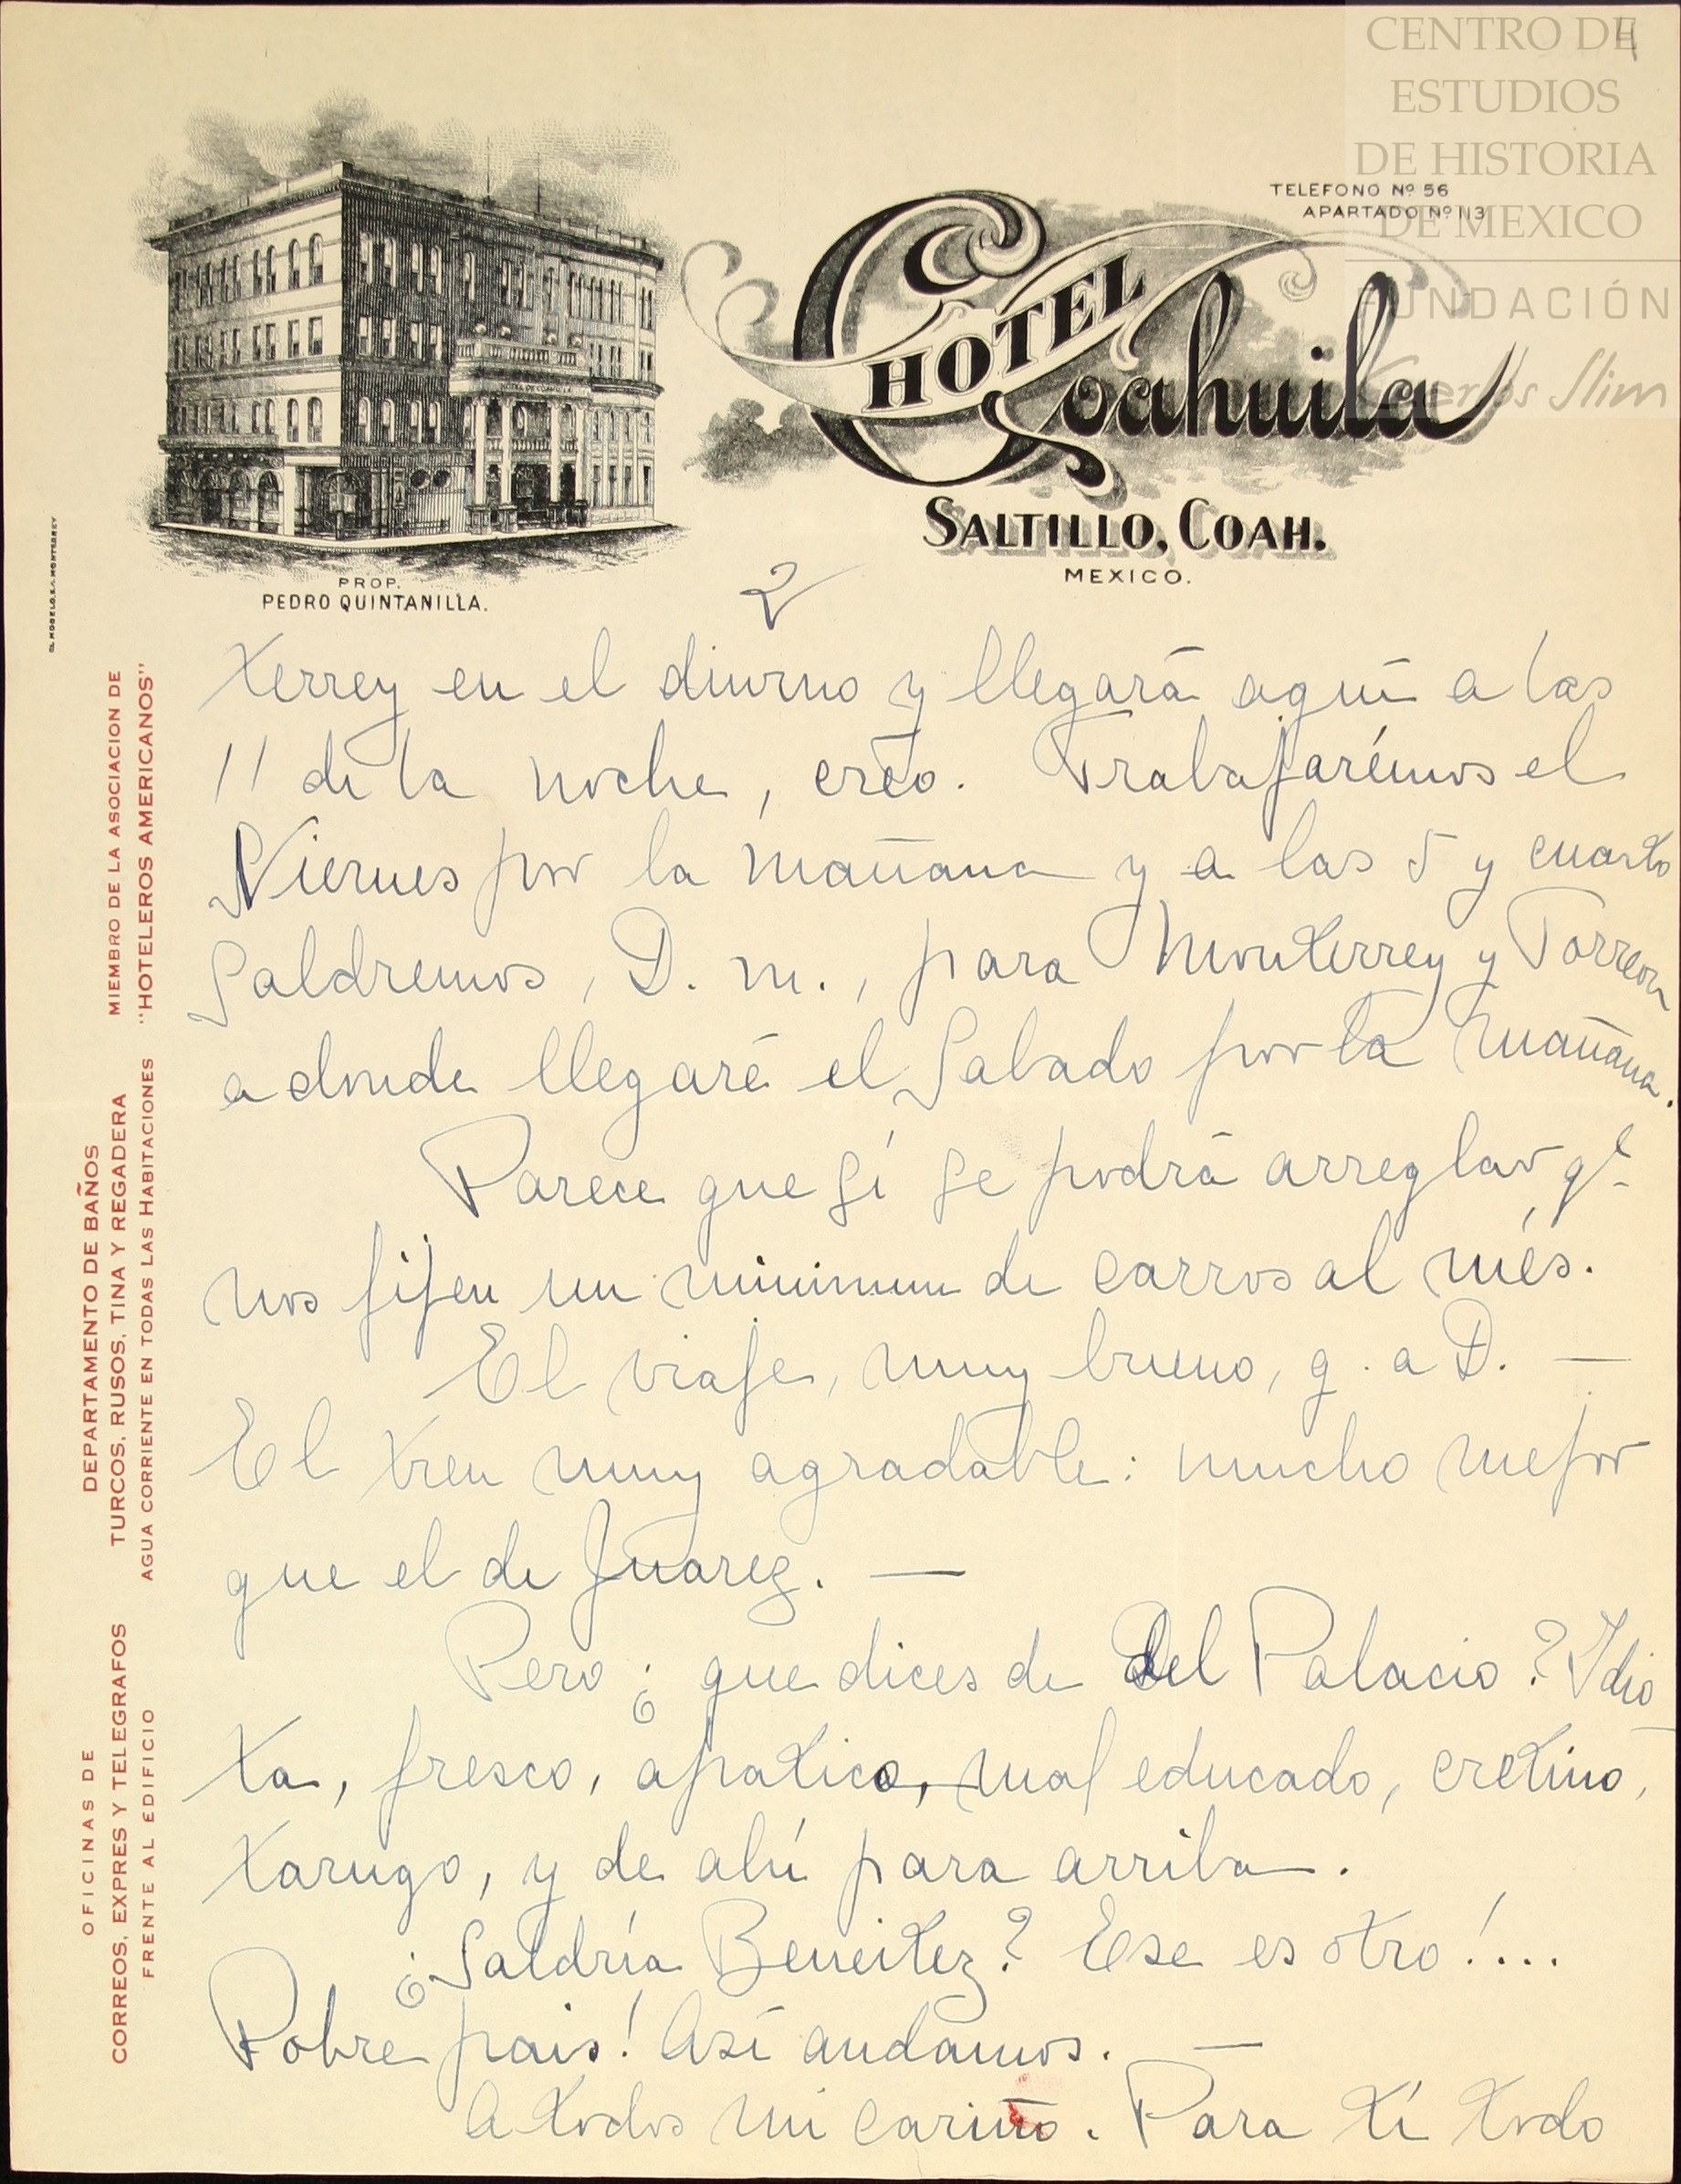 CENTRO DE
ESTUDIOS
DE HISTORIA
DE MEXICO
FUNDACIÓN
Carlos Slim
4
TELEFONO Nº 56
APARTADO Nº 113
HOTEL Coahuila
SALTILLO, COAH.
MEXICO.
HOTEL DE COAHUILA
PROP.
PEDRO QUINTANILLA.
EL MODELO, S.A. MONTERREY
MIEMBRO DE LA ASOCIACION DE
"HOTELEROS AMERICANOS"
DEPARTAMENTO DE BAÑOS
TURCOS, RUSOS, TINA Y REGADERA
AGUA CORRIENTE EN TODAS LAS HABITACIONES
OFICINAS DE
CORREOS, EXPRES Y TELEGRAFOS
FRENTE AL EDIFICIO
2
terrey en el diurno y llegará aquí a las
11 de la noche, creo. Trabajarémos el
Viernes por la mañana y a las 5 y cuarto
Saldremos, D. m., para Monterrey y Torreon
a donde llegaré el Sabado por la mañana.
Parece que sí se podrá arreglar qe
nos fijen un minimum de carros al més.
El viaje, muy bueno, g. a D. —
El tren muy agradable: mucho mejor
que el de Juarez. —
Pero ¿que dices de Del Palacio? Idio
ta, fresco, apatico, mal educado, cretino,
tarugo, y de ahí para arriba.
¿Saldría Beneitez? Ese es otro!...
Pobre pais! Así andamos. —
A todos mi cariño. Para tí todo